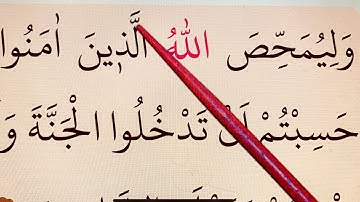 وَلِيُمَحِّصَ اللّٰهُ الَّذ۪ينَ اٰمَنُوا
حَسِبْتُمْ اَنْ تَدْخُلُوا الْجَنَّةَ